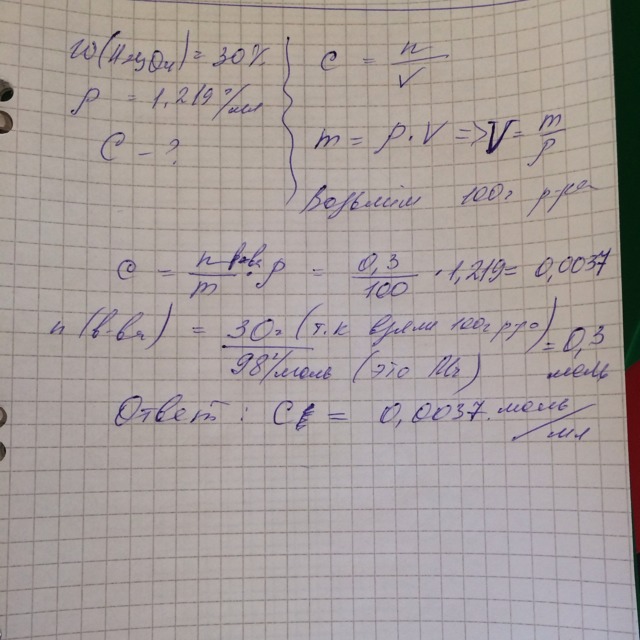 ω(H₂SO₄) = 30%
ρ = 1,219 г/мл
C - ?
C = n/V
m = ρ·V => V = m/ρ
Возьмём 100г р-ра
C = n в-ва/m · ρ = 0,3/100 · 1,219 = 0,0037
n (в-ва) = 30г (т.к взяли 100г р-ра) / 98 г/моль (это Mr) = 0,3 моль
Ответ: C = 0,0037 моль/мл